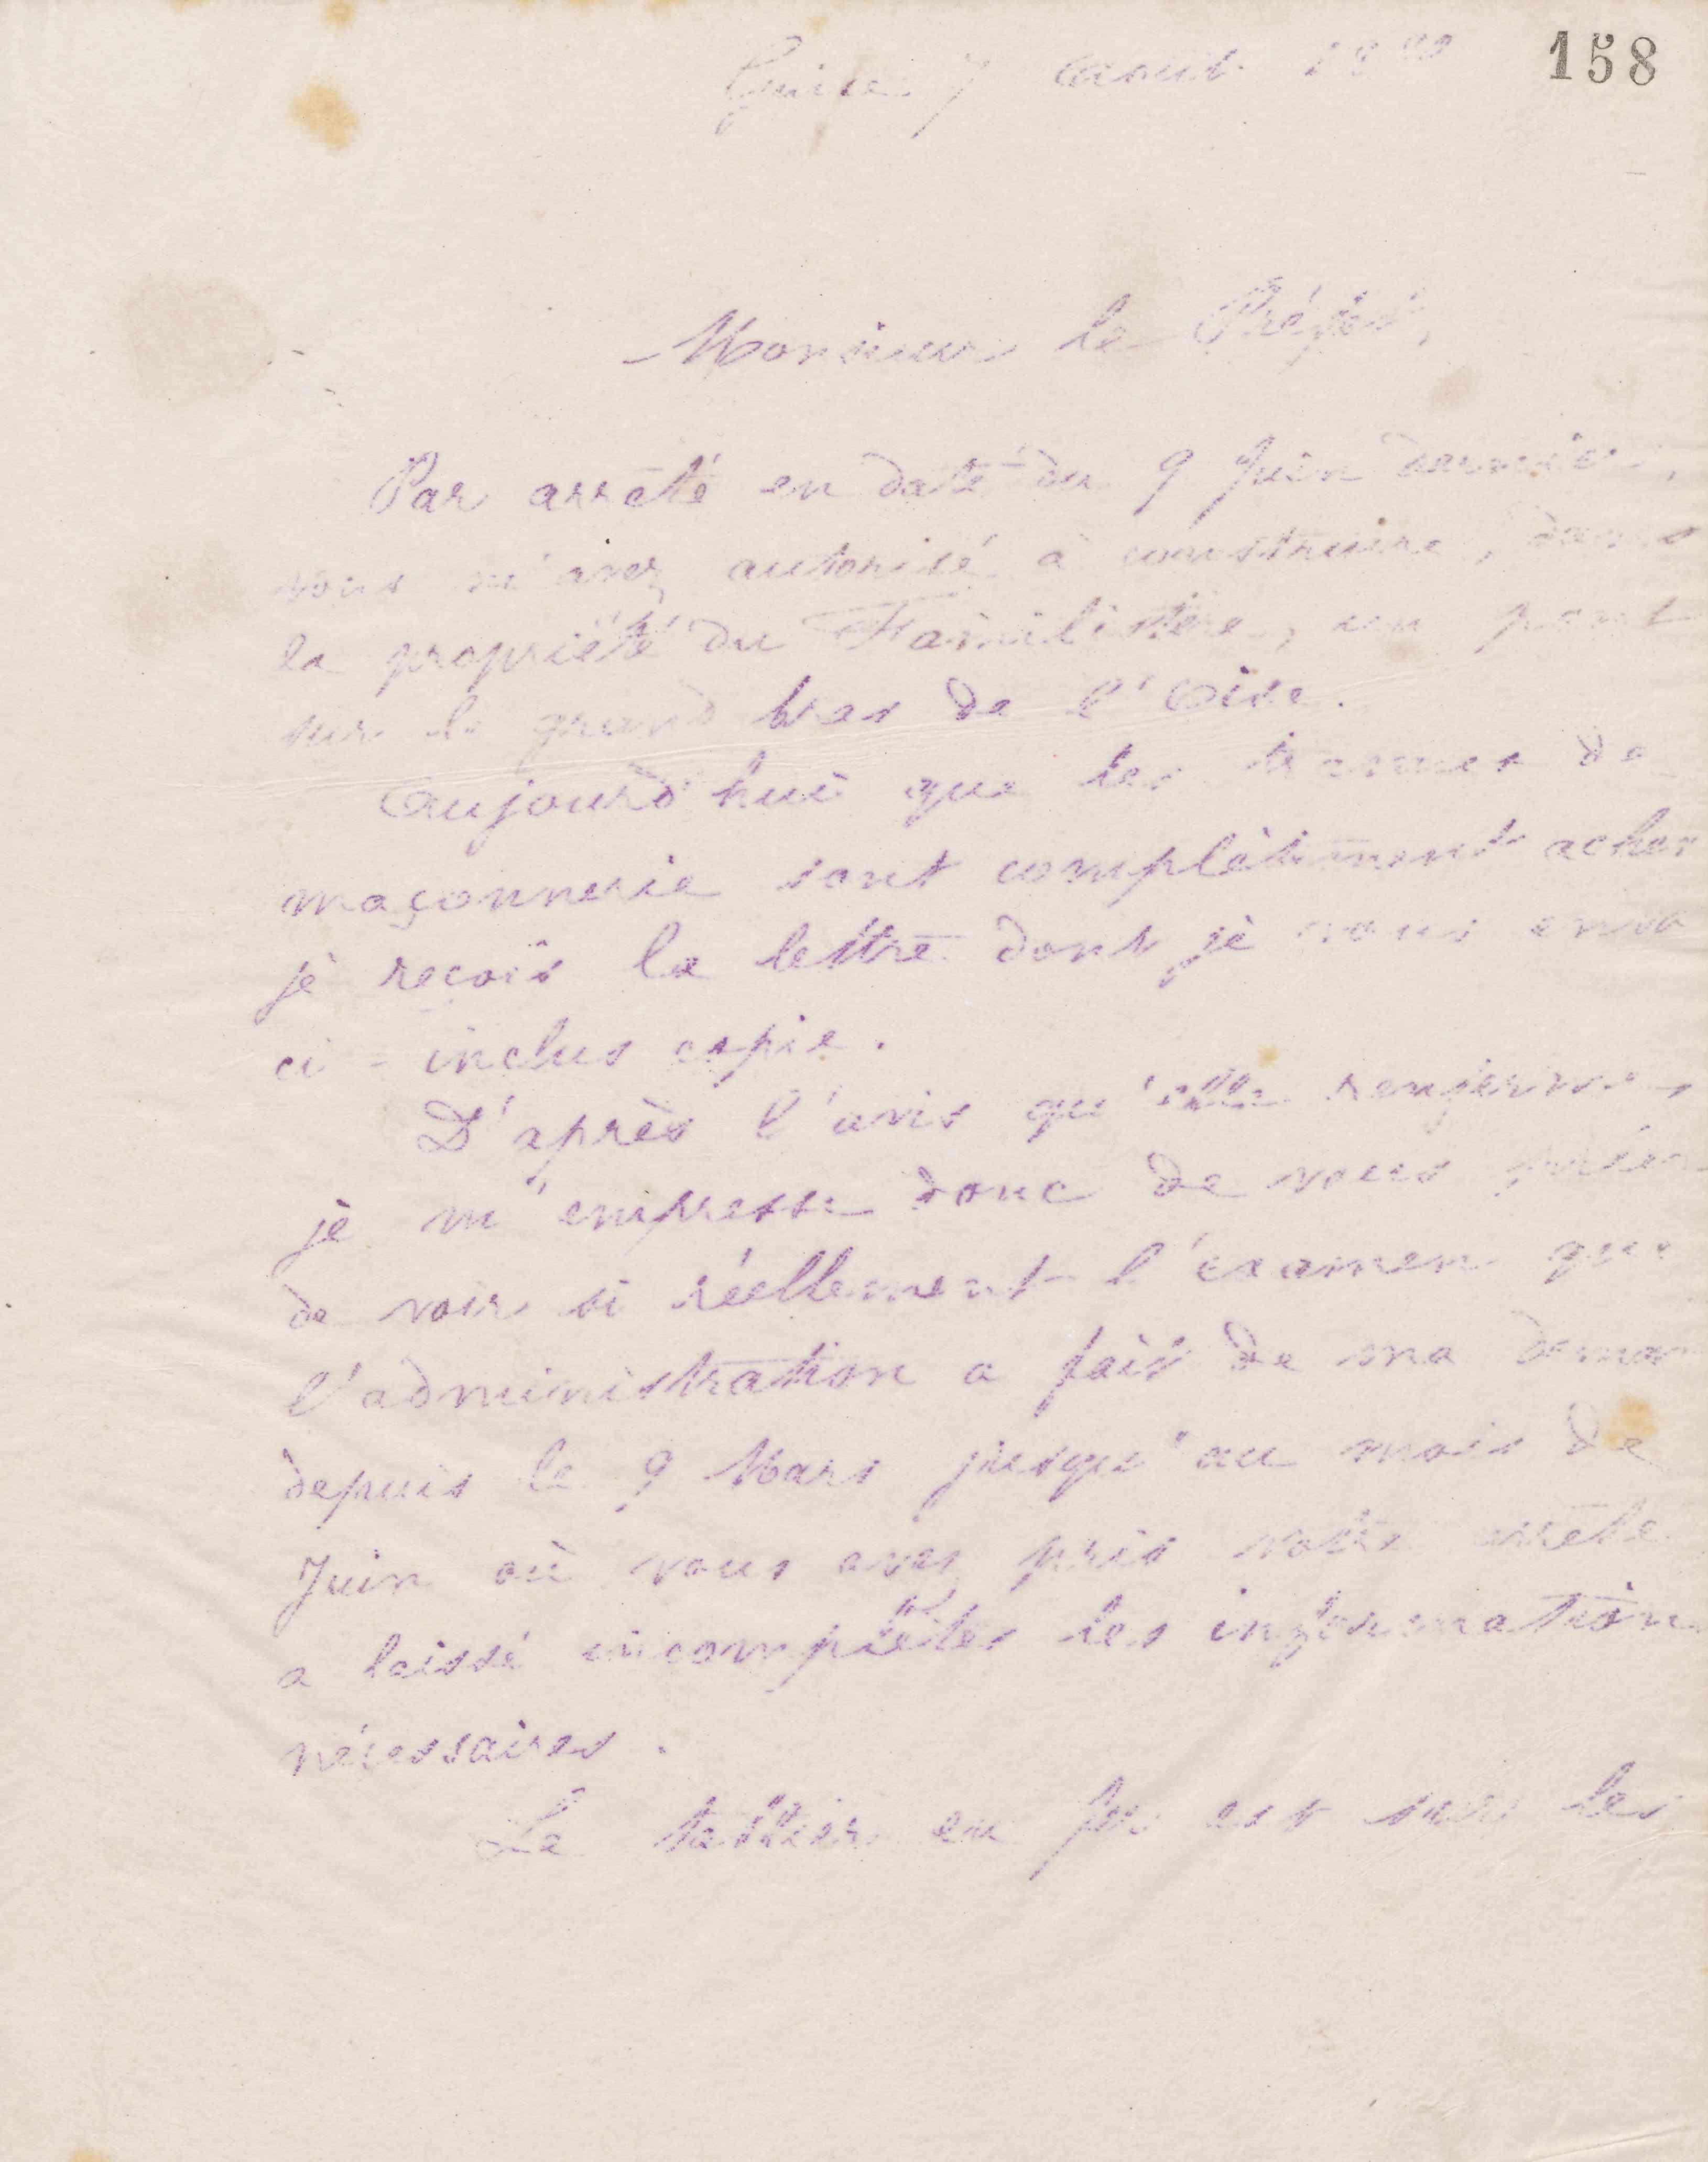 158
Guise 7 Août 18
Monsieur le Préfet,
Par arrêté en date du 9 Juin dernier,
vous m'avez autorisé à construire, dans
la propriété du Familistère, un pont
sur le grand bras de l'Oise.
Aujourd'hui que les travaux de
maçonnerie sont complètement achev
je reçois la lettre dont je vous envoi
ci-inclus copie.
D'après l'avis qu'elle renferme
je m'empresse donc de vous prier
de voir si réellement l'examen que
l'administration a fait de ma deman
depuis le 9 Mars jusqu'au mois de
Juin où vous avez pris votre arrêté
a laissé incomplètes les informations
nécessaires.
Le tablier en fer est sur les